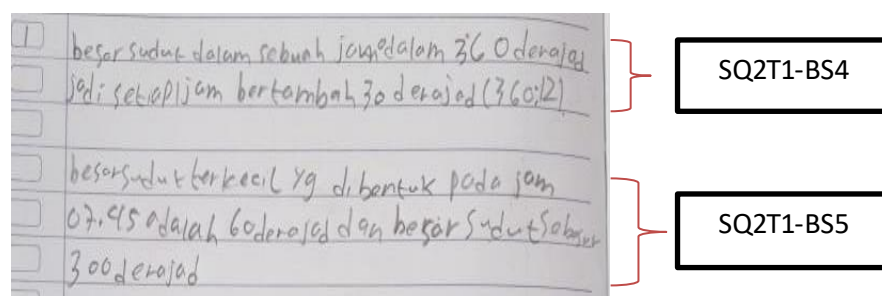 1
besar sudut dalam sebuah jam dalam 360 derajad
SQ2T1-BS4
jadi setiap jam bertambah 30 derajad (360:12)
besar sudut terkecil yg dibentuk pada jam
07.45 adalah 60 derajad dan besar sudut
SQ2T1-BS5
300 derajad